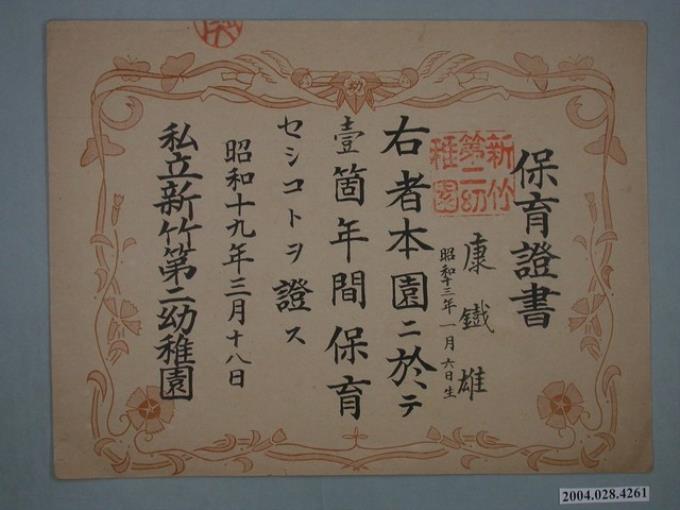 保育證書
新竹
第二幼
稚園
康鐵雄
昭和十三年一月六日生
右者本園ニ於テ
壹箇年間保育
セシコトヲ證ス
昭和十九年三月十八日
私立新竹第二幼稚園
幼
2004.028.4261